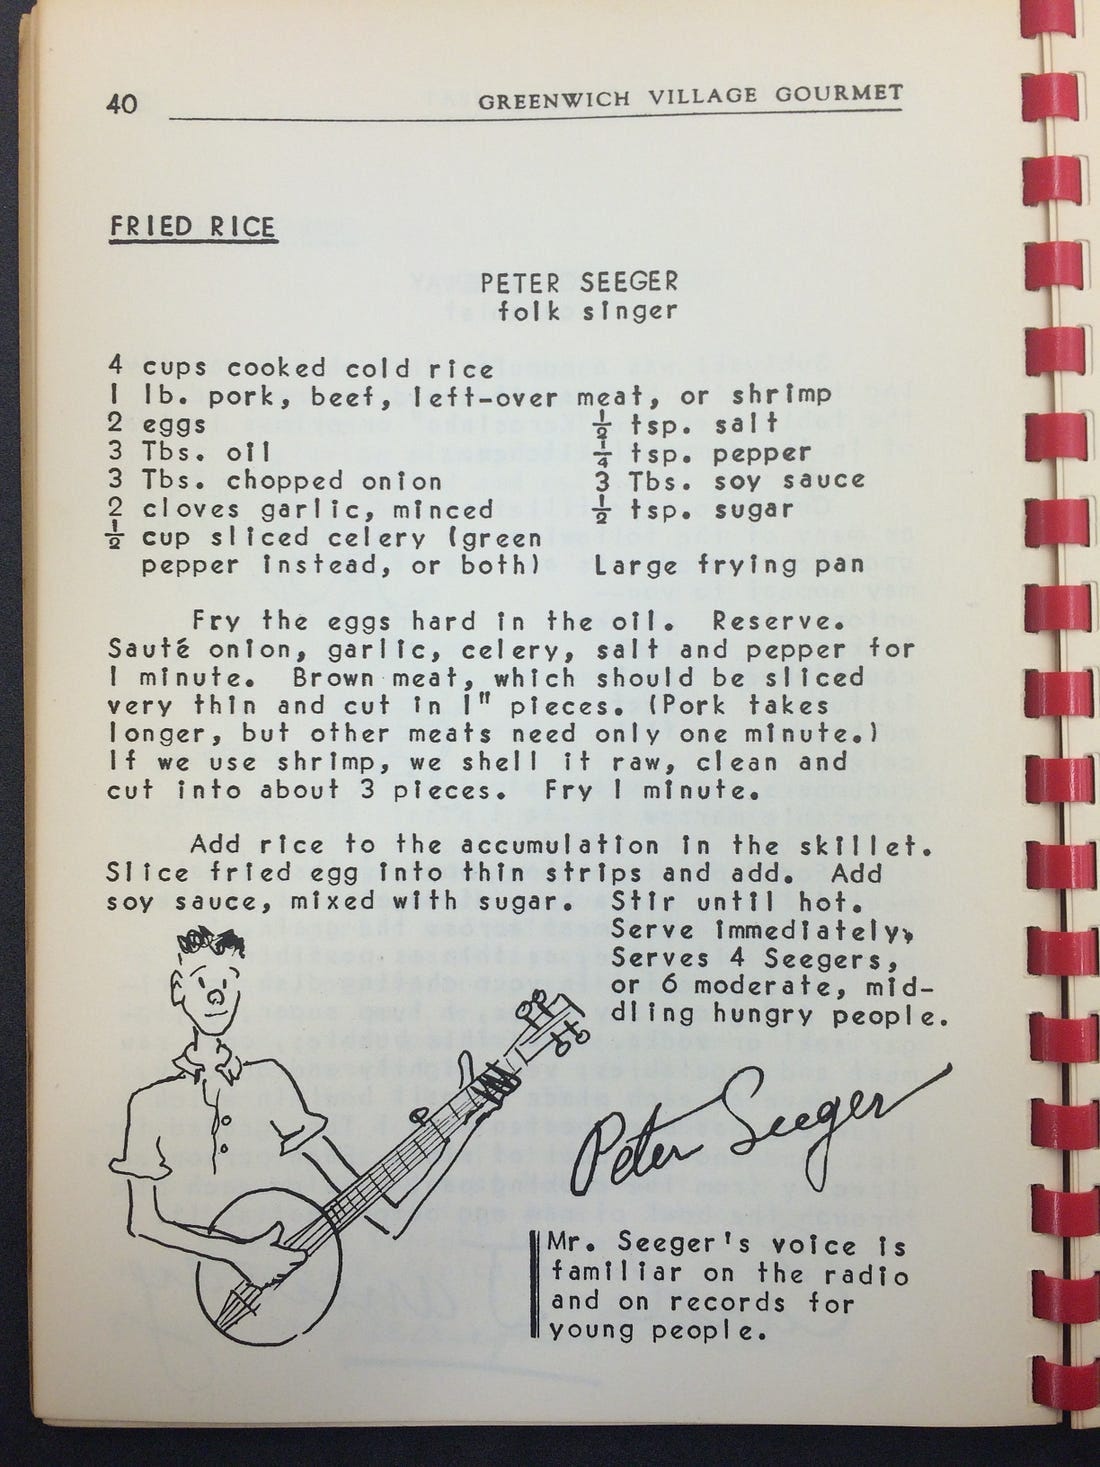 40
GREENWICH VILLAGE GOURMET
FRIED RICE
PETER SEEGER
folk singer
4 cups cooked cold rice
1 lb. pork, beef, left-over meat, or shrimp
2 eggs ½ tsp. salt
3 Tbs. oil ¼ tsp. pepper
3 Tbs. chopped onion 3 Tbs. soy sauce
2 cloves garlic, minced ½ tsp. sugar
½ cup sliced celery (green
pepper instead, or both) Large frying pan
Fry the eggs hard in the oil. Reserve.
Sauté onion, garlic, celery, salt and pepper for
1 minute. Brown meat, which should be sliced
very thin and cut in 1" pieces. (Pork takes
longer, but other meats need only one minute.)
If we use shrimp, we shell it raw, clean and
cut into about 3 pieces. Fry 1 minute.
Add rice to the accumulation in the skillet.
Slice fried egg into thin strips and add. Add
soy sauce, mixed with sugar. Stir until hot.
Serve immediately.
Serves 4 Seegers,
or 6 moderate, mid-
dling hungry people.
Peter Seeger
Mr. Seeger's voice is
familiar on the radio
and on records for
young people.